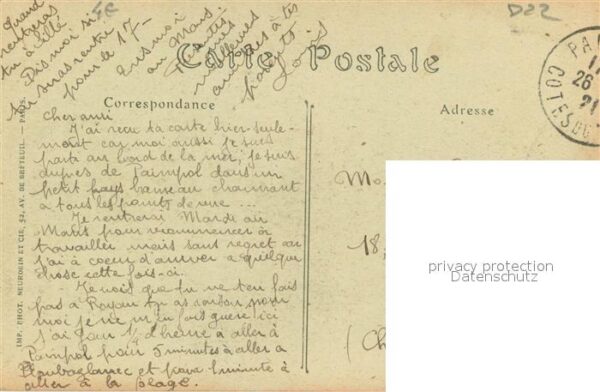 Quand
rentreras
tu à Sillé
Dis moi si
tu seras rentré
pour le 17 —
Ecris moi
au Mans.
Toutes
meilleures
amitiés à tes
parents
Louis
4E
D22
Carte Postale
Correspondance
Adresse
PA
17
26
21
COTES DU
Cher ami
J'ai reçu ta carte hier seule-
ment car moi aussi je suis
parti au bord de la mer, je suis
auprès de Paimpol dans un
petit pays hameau charmant
à tous les points de vue ...
Je rentrerai Mardi au
Mans pour recommencer à
travailler mais sans regret car
j'ai à coeur d'arriver à quelque
chose cette fois-ci.
Je vois que tu ne t'en fais
pas à Royan tu as raison, pour
moi je ne m'en fais guère ici
J'ai pour 1/4 d'heure à aller à
Paimpol pour 5 minutes à aller à
Ploubazlanec et pour 1 minute à
aller à la plage.
IMP. PHOT. NEURDEIN ET CIE, 52, AV. DE BRETEUIL. — PARIS.
Mo
18,
(Ch
privacy protection
Datenschutz